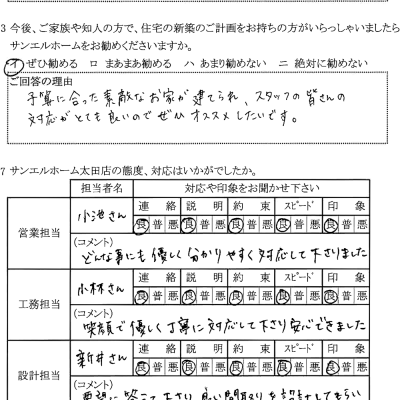 3 今後、ご家族や知人の方で、住宅の新築のご計画をお持ちの方がいらっしゃいましたら
サンエルホームをお勧めくださいますか。
イ ぜひ勧める ロ まあまあ勧める ハ あまり勧めない ニ 絶対に勧めない
ご回答の理由
予算に合った素敵なお家が建てられ、スタッフの皆さんの
対応がとても良いのでぜひオススメしたいです。
7 サンエルホーム太田店の態度、対応はいかがでしたか。
担当者名 対応や印象をお聞かせ下さい
営業担当 小池さん
連絡 説明 約束 スピード 印象
良 普 悪 良 普 悪 良 普 悪 良 普 悪 良 普 悪
(コメント)
どんな事にも優しく分かりやすく対応して下さりました
工務担当 小林さん
連絡 説明 約束 スピード 印象
良 普 悪 良 普 悪 良 普 悪 良 普 悪 良 普 悪
(コメント)
笑顔で優しく丁寧に対応して下さり安心できました
設計担当 新井さん
連絡 説明 約束 スピード 印象
良 普 悪 良 普 悪 良 普 悪 良 普 悪 良 普 悪
(コメント)
要望に答えて下さり良い間取りを設計してもらい